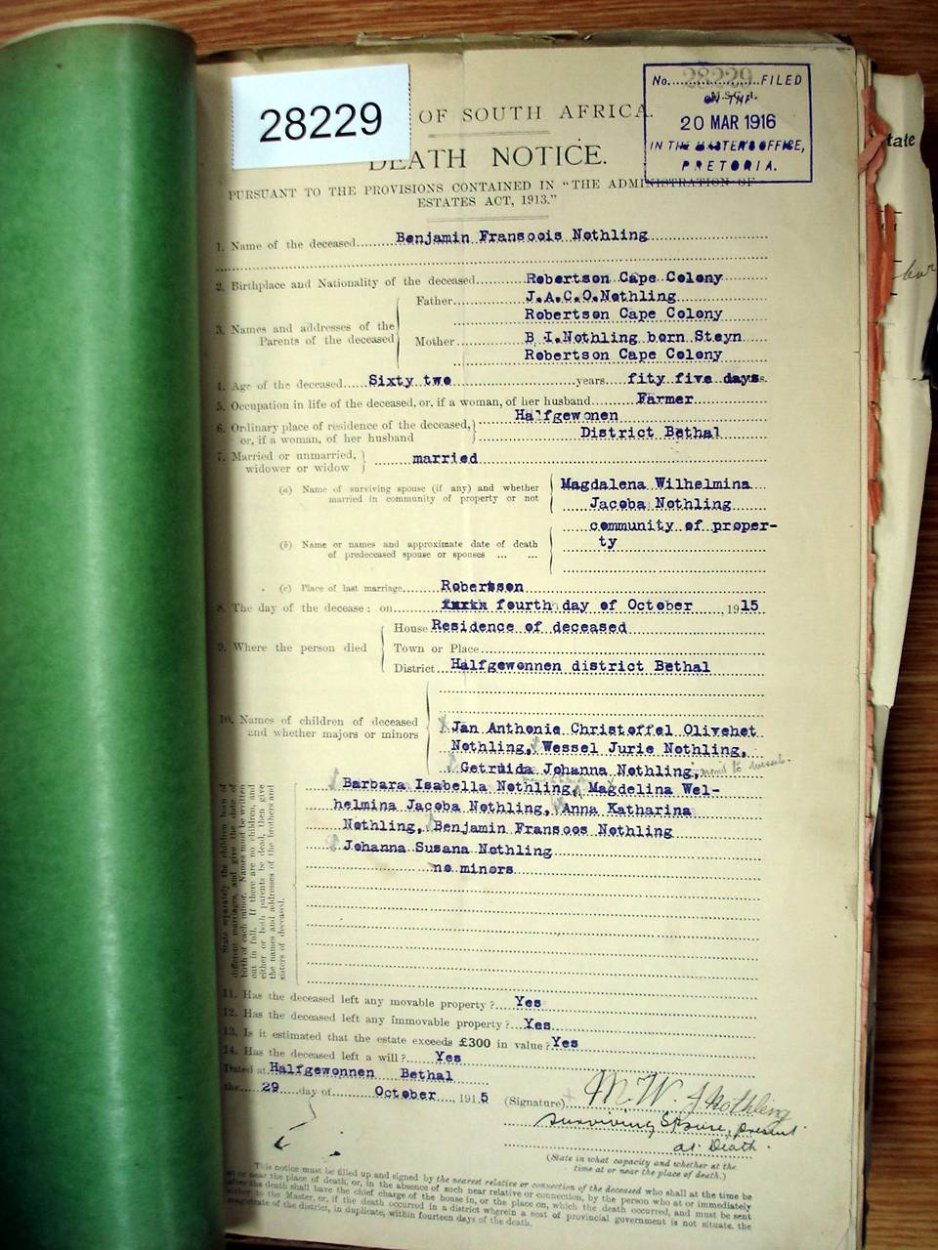 28229
OF SOUTH AFRICA.
No. 28229 FILED
ON THE
20 MAR 1916
IN THE MASTER'S OFFICE,
PRETORIA.
tate
DEATH NOTICE.
PURSUANT TO THE PROVISIONS CONTAINED IN "THE ADMINISTRATION OF
ESTATES ACT, 1913."
1. Name of the deceased Benjamin Fransoois Nothling
2. Birthplace and Nationality of the deceased Robertson Cape Colony
3. Names and addresses of the Parents of the deceased
Father J.A.C.O.Nothling
Robertson Cape Colony
Mother B I.Nothling born Steyn
Robertson Cape Colony
4. Age of the deceased Sixty two years fity five days
5. Occupation in life of the deceased, or, if a woman, of her husband Farmer
6. Ordinary place of residence of the deceased, Halfgewonen
or, if a woman, of her husband District Bethal
7. Married or unmarried, married
widower or widow
(a) Name of surviving spouse (if any) and whether Magdalena Wilhelmina
married in community of property or not Jacoba Nothling
community of proper-
ty
(b) Name or names and approximate date of death
of predeceased spouse or spouses ... ...
(c) Place of last marriage Robertson
8. The day of the decease: on fourth day of October 1915
9. Where the person died
House Residence of deceased
Town or Place
District Halfgewonnen district Bethal
10. Names of children of deceased
and whether majors or minors
Jan Anthonie Christoffel Olivehet
Nothling, Wessel Jurie Nothling,
Getruida Johanna Nothling,
Barbara Isabella Nothling, Magdelina Wel-
helmina Jacoba Nothling, Anna Katharina
Nothling, Benjamin Fransoos Nothling
Johanna Susana Nothling
no minors
State separately the children born of
different marriages, and give the date of
birth of each minor. Names must be written
out in full. If there are no children, and
either or both parents be dead, then give
the names and addresses of the brothers and
sisters of deceased.
11. Has the deceased left any movable property? Yes
12. Has the deceased left any immovable property? Yes
13. Is it estimated that the estate exceeds £300 in value? Yes
14. Has the deceased left a will? Yes
Dated at Halfgewonnen Bethal
the 29 day of October, 1915
(Signature) M. W. J Nothling
Surviving Spouse, present
at Death.
(State in what capacity and whether at the
time at or near the place of death.)
This notice must be filled up and signed by the nearest relative or connection of the deceased who shall at the time be
at or near the place of death, or, in the absence of such near relative or connection, by the person who at or immediately
after the death shall have the chief charge of the house in, or the place on, which the death occurred, and must be sent
either to the Master, or, if the death occurred in a district wherein a seat of provincial government is not situate, the
magistrate of the district, in duplicate, within fourteen days of the death.